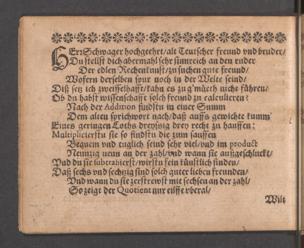 HErr Schwager hochgeehrt/ als Teutscher freund und bruder/
Du stellst dich abermahl sehr sinnreich an den ruder
Der edlen Rechenkunst/ zu suchen gute freund/
Wofern derselben spur noch in der Welte seind/
Diß setz ich zweiffelhafft/ kahn es zu g'müeth nicht führen/
Ob du habst wissenschafft solch freund zu calculieren:
Nach der Addition findstu in einer Summ
Dem alten sprichwort nach/ daß auffs gewichte kumm
Eines geringen Loths dreyssig drey recht zu hauffen:
Multiplicierstu sie so findstu die zum sauffen
Bequem und tuglich seind sehr viel/ und im product
Neuntzig neun an der zahl/ und wann sie außgeschluckt/
Und du sie subtrahierst/ wirstu kein künfftlich finden/
Daß sechs und sechtzig sind solch guter lieben freunden/
Und wann du sie zerstrewst mit sechsen an der zahl/
So zeigt der Quotient nur eilffe überal/
Wilt